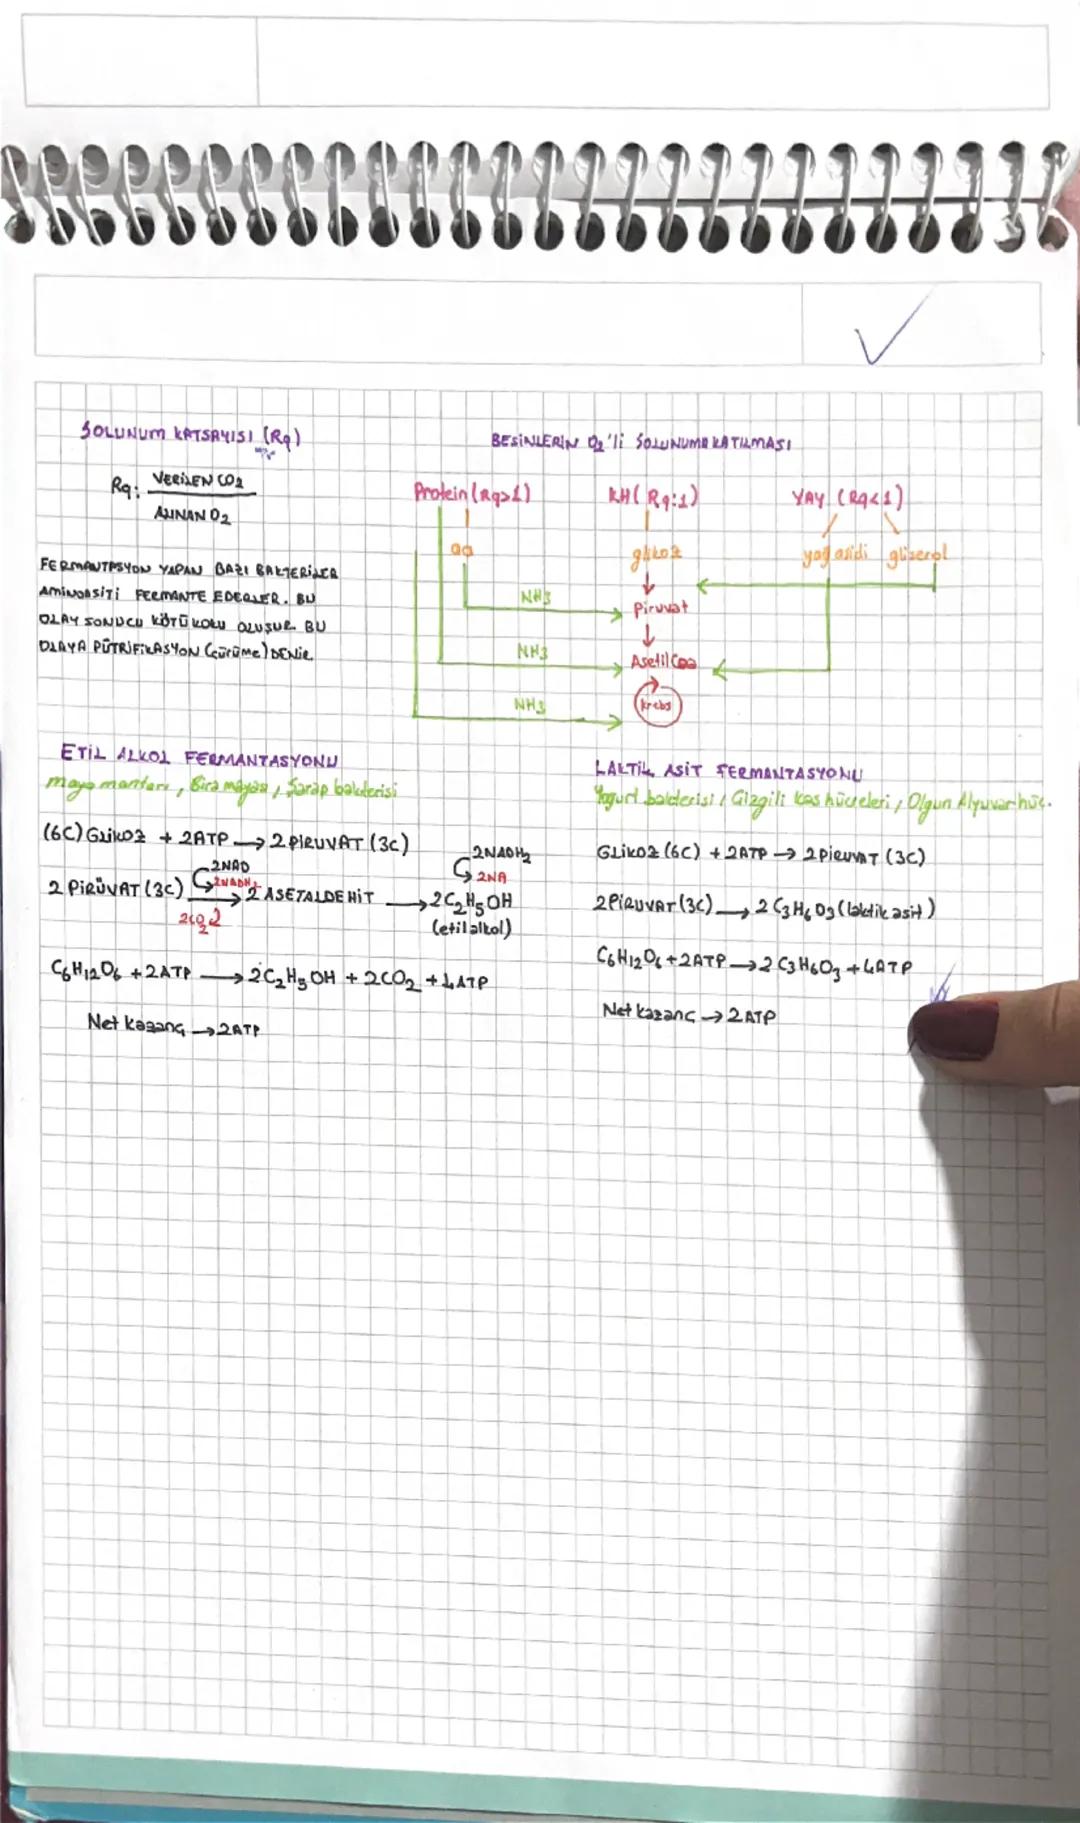 SOLUNUM KATSAYISI (Rq)
Rq: VERİLEN CO2
ALINAN O2
FERMANTASYON YAPAN BAZI BAKTERİLER
AMİNOASİTİ FERMANTE EDERLER. BU
OLAY SONUCU KÖTÜ KOKU OLUŞUR. BU
OLAYA PÜTRİFİKASYON (çürüme) DENİR.
BESİNLERİN O2'li SOLUNUMA KATILMASI
Protein (Rq>1) KH (Rq:1) YAY (Rq<1)
aa glikoz yağ asidi gliserol
NH3 Piruvat
NH3 Asetil Coa
NH3 krebs
ETİL ALKOL FERMANTASYONU
maya mantarı, Bira mayası, Şarap bakterisi
(6C) GLİKOZ + 2ATP → 2 PİRUVAT (3C)
2NAD 2NADH2
2NADH2 2NA
2 PİRÜVAT (3C) → 2 ASETALDEHİT → 2C2H5OH
2CO2 (etil alkol)
C6H12O6 + 2ATP → 2C2H5OH + 2CO2 + 4ATP
Net kazanç → 2ATP
LAKTİK ASİT FERMANTASYONU
Yogurt bakterisi, Çizgili kas hücreleri, Olgun Alyuvar hüc.
GLİKOZ (6C) + 2ATP → 2PİRUVAT (3C)
2PİRUVAT (3C) → 2 C3H6O3 (laktik asit)
C6H12O6 + 2ATP → 2 C3H6O3 + 4ATP
Net kazanç → 2ATP